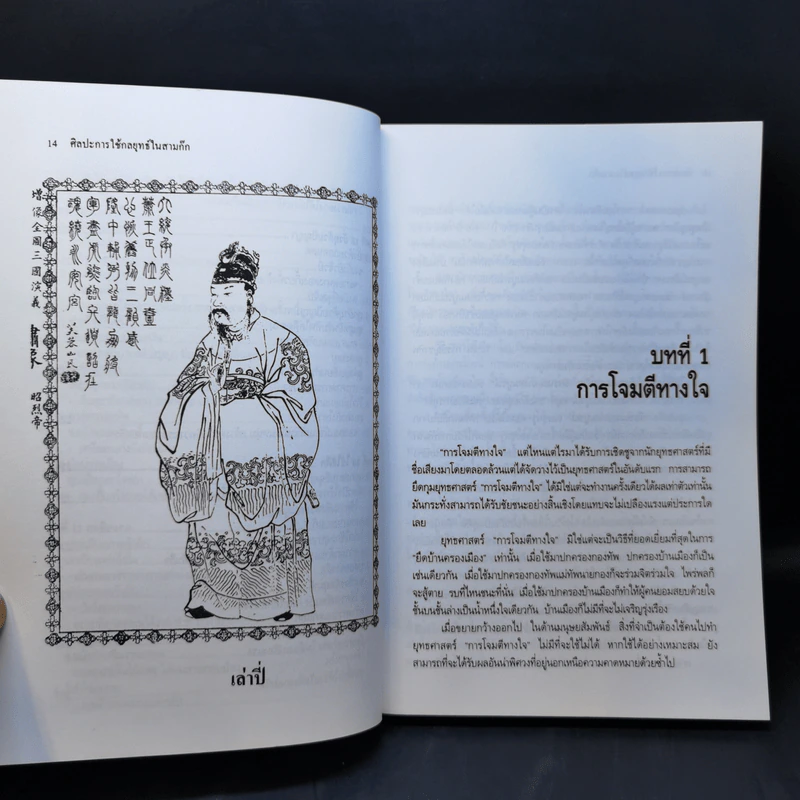 14 ศิลปะการใช้กลยุทธ์ในสามก๊ก
增像全圖三國演義
昭烈帝
เล่าปี่
บทที่ 1
การโจมตีทางใจ
"การโจมตีทางใจ" แต่ไหนแต่ไรมาได้รับการเชิดชูจากนักยุทธศาสตร์ที่มี
ชื่อเสียงมาโดยตลอดล้วนแต่ได้จัดวางไว้เป็นยุทธศาสตร์ในอันดับแรก การสามารถ
ยึดกุมยุทธศาสตร์ "การโจมตีทางใจ" ได้มิใช่แต่จะทำงานครั้งเดียวได้ผลเท่าตัวเท่านั้น
มันกระทั่งสามารถได้รับชัยชนะอย่างสิ้นเชิงโดยแทบจะไม่เปลืองแรงแต่ประการใด
เลย
ยุทธศาสตร์ "การโจมตีทางใจ" มิใช่แต่จะเป็นวิธีที่ยอดเยี่ยมที่สุดในการ
"ยึดบ้านครองเมือง" เท่านั้น เมื่อใช้มาปกครองกองทัพ ปกครองบ้านเมืองก็เป็น
เช่นเดียวกัน เมื่อใช้มาปกครองกองทัพแม่ทัพนายกองก็จะร่วมจิตร่วมใจ ไพร่พลก็
จะสู้ตาย รบที่ไหนชนะที่นั่น เมื่อใช้มาปกครองบ้านเมืองก็ทำให้ผู้คนยอมสยบด้วยใจ
ชั้นบนชั้นล่างเป็นน้ำหนึ่งใจเดียวกัน บ้านเมืองก็ไม่มีที่จะไม่เจริญรุ่งเรือง
เมื่อขยายกว้างออกไป ในด้านมนุษยสัมพันธ์ สิ่งที่จำเป็นต้องใช้คนไปทำ
ยุทธศาสตร์ "การโจมตีทางใจ" ไม่มีที่จะใช้ไม่ได้ หากใช้ได้อย่างเหมาะสม ยัง
สามารถที่จะได้รับผลอันน่าพิศวงที่อยู่นอกเหนือความคาดหมายด้วยซ้ำไป